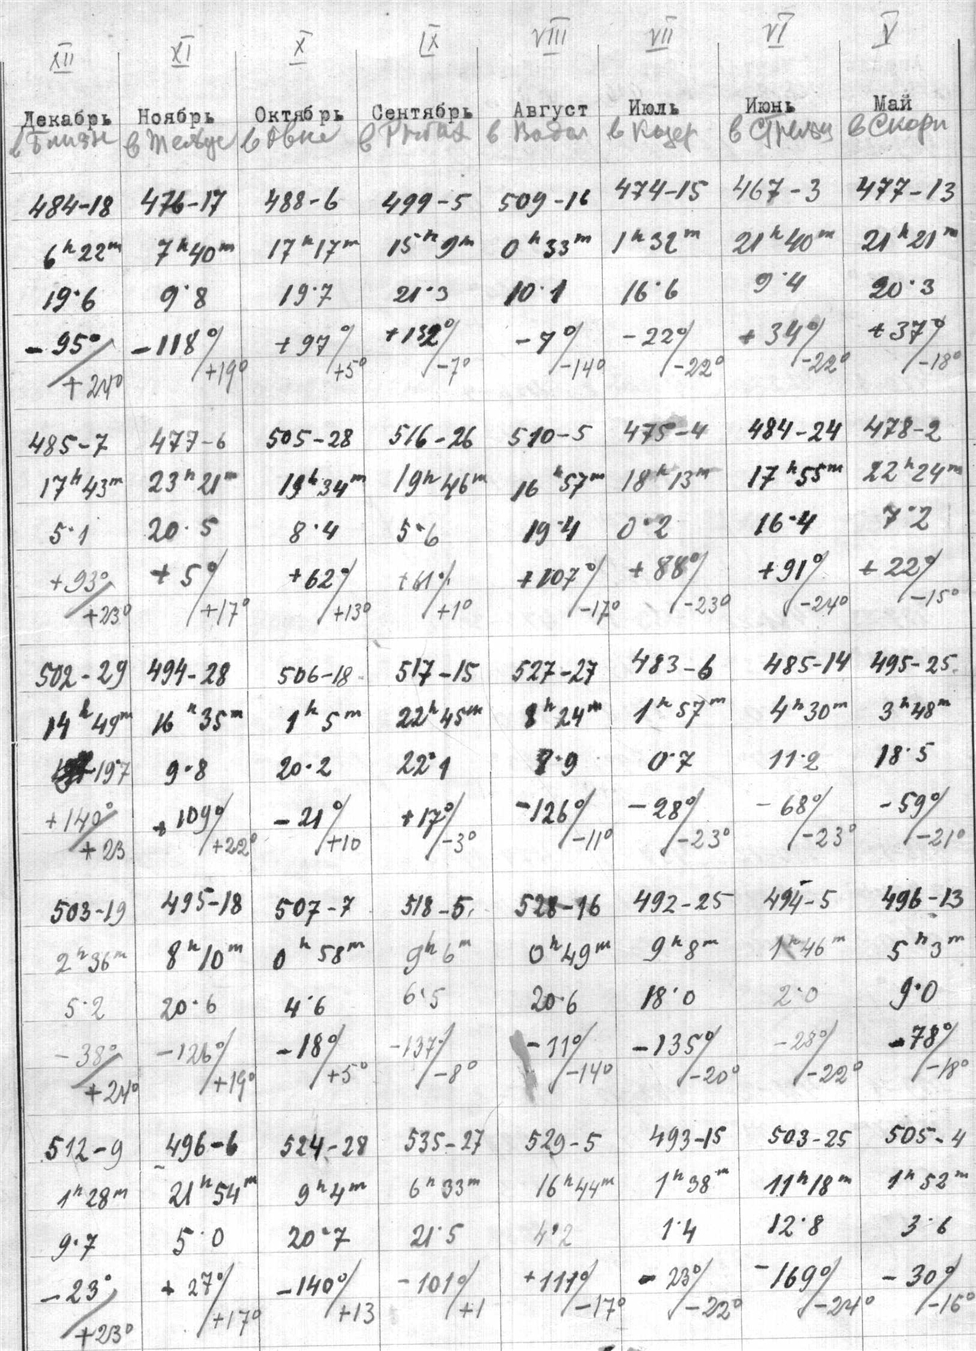 XII XI X IX VIII VII VI V
Декабрь Ноябрь Октябрь Сентябрь Август Июль Июнь Май
в Близн в Тельце в Овне в Рыбах в Водол в Козер в Стрельц в Скорп
484-18 476-17 488-6 499-5 509-16 474-15 467-3 477-13
6h22m 7h40m 17h17m 15h9m 0h33m 1h32m 21h40m 21h21m
19·6 9·8 19·7 21·3 10·1 16·6 9·4 20·3
-95°/+24° -118°/+19° +97°/+5° +132°/-7° -7°/-14° -22°/-22° +34°/-22° +37°/-18°
485-7 477-6 505-28 516-26 510-5 475-4 484-24 478-2
17h43m 23h21m 19h34m 19h46m 16h57m 18h13m 17h55m 22h24m
5·1 20·5 8·4 5·6 19·4 0·2 16·4 7·2
+93°/+23° +5°/+17° +62°/+13° +61°/+1° +107°/-17° +88°/-23° +91°/-24° +22°/-15°
502-29 494-28 506-18 517-15 527-27 483-6 485-14 495-25
14h49m 16h35m 1h5m 22h45m 8h24m 1h57m 4h30m 3h48m
19·7 9·8 20·2 22·1 7·9 0·7 11·2 18·5
+140°/+23 +109°/+22° -21°/+10 +17°/-3° -126°/-11° -28°/-23° -68°/-23° -59°/-21°
503-19 495-18 507-7 518-5 528-16 492-25 494-5 496-13
2h36m 8h10m 0h58m 9h6m 0h49m 9h8m 1h46m 5h3m
5·2 20·6 4·6 6·5 20·6 18·0 2·0 9·0
-38°/+24° -126°/+19° -18°/+5° -137°/-8° -11°/-14° -135°/-20° -28°/-22° -78°/-18°
512-9 496-6 524-28 535-27 529-5 493-15 503-25 505-4
1h28m 21h54m 9h4m 6h33m 16h44m 1h38m 11h18m 1h52m
9·7 5·0 20·7 21·5 4·2 1·4 12·8 3·6
-23°/+23° +27°/+17° -140°/+13 -101°/+1 +111°/-17° -23°/-22° -169°/-24° -30°/-16°